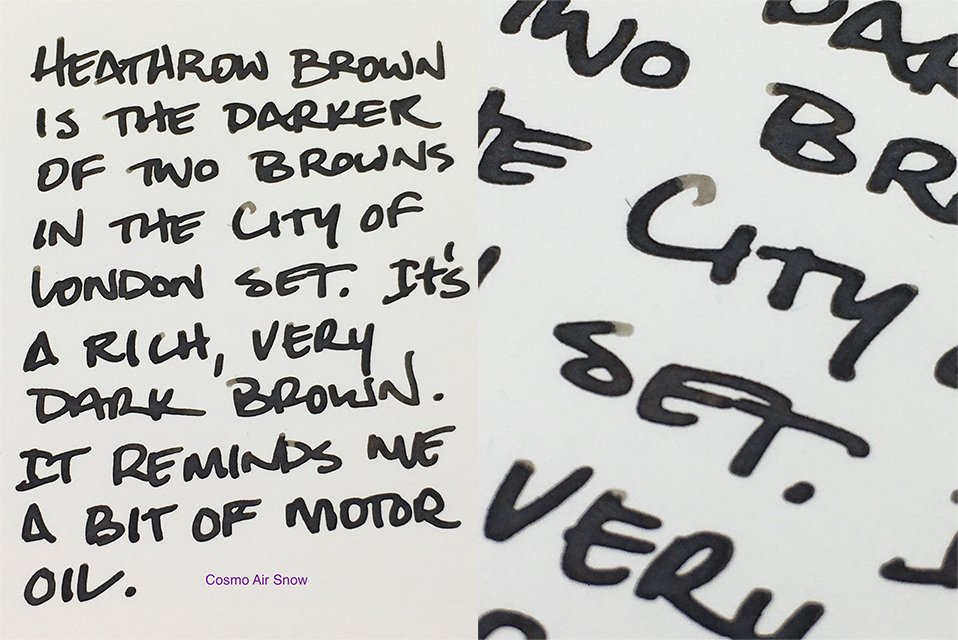 HEATHROW BROWN
IS THE DARKER
OF TWO BROWNS
IN THE CITY OF
LONDON SET. It's
A RICH, VERY
DARK BROWN.
IT REMINDS ME
A BIT OF MOTOR
OIL.
Cosmo Air Snow
DARK
TWO BR
THE
CITY
SET.
VERY